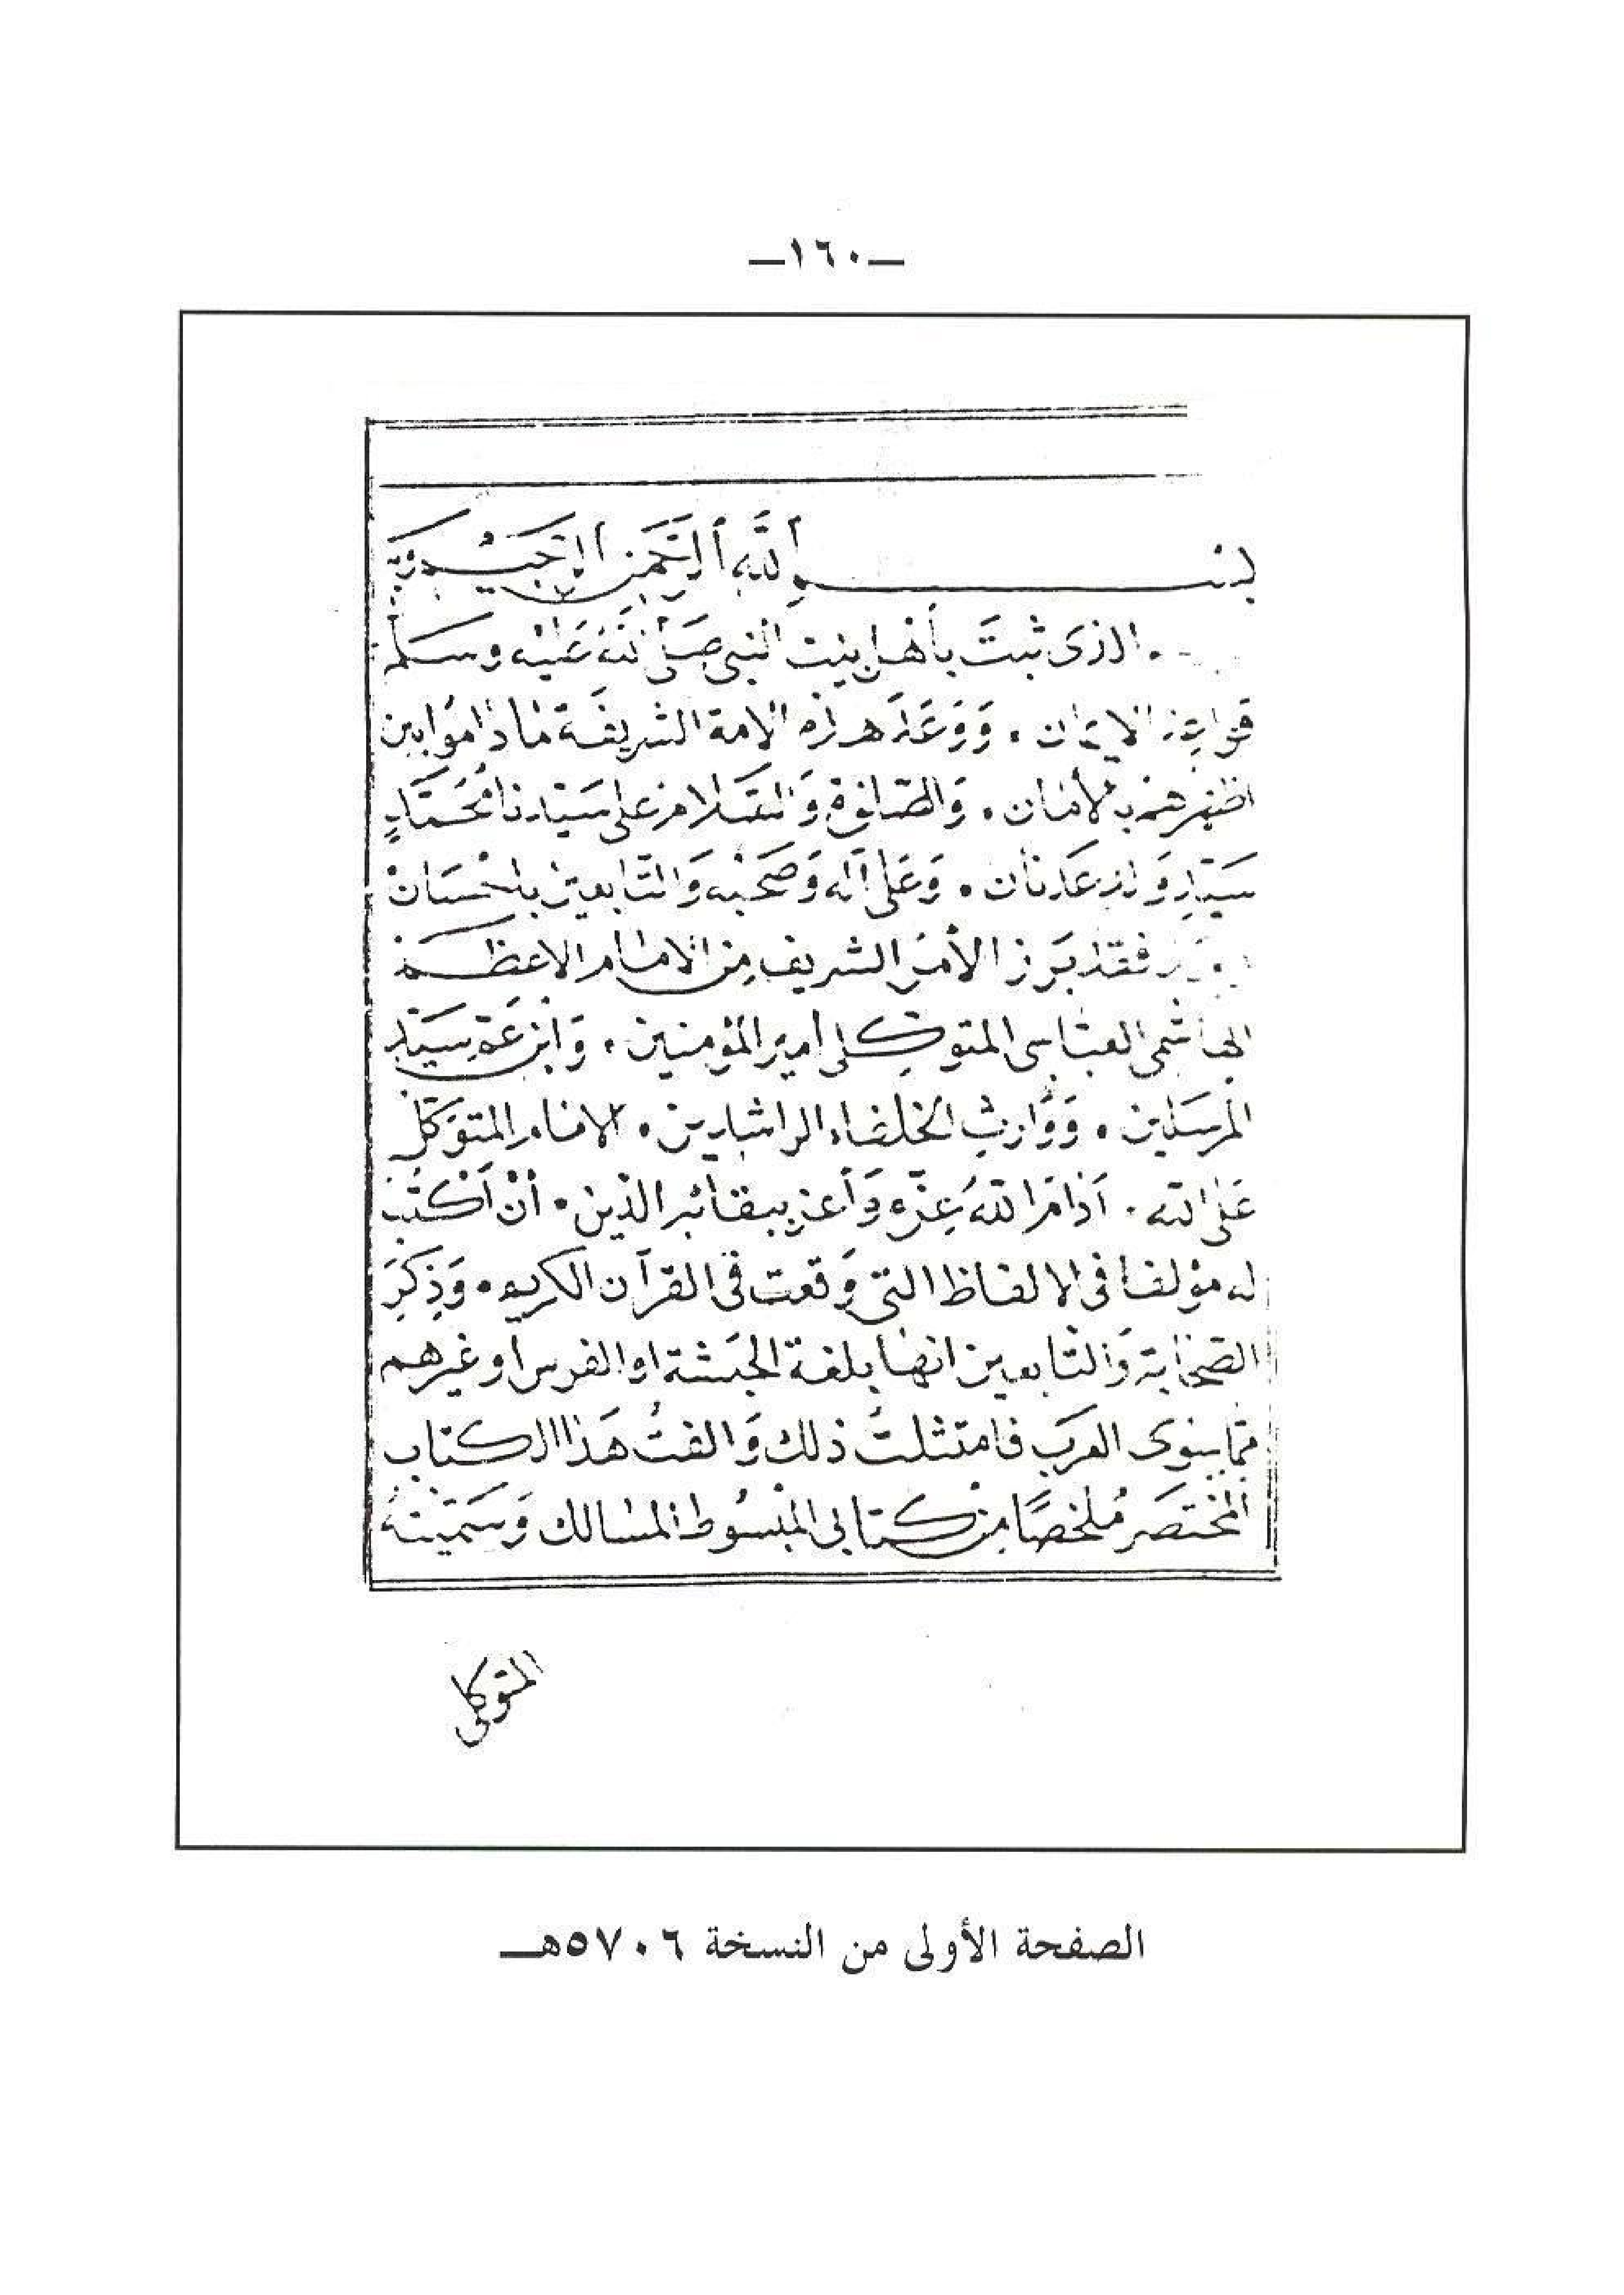 —١٦٠—
بسم الله الرحمن الرحيم وبه
الذى ثبت بأهل بيت النبي صلى الله عليه وسلم
قواعد الايمان . ووعد هذه الامة الشريفة ما داموا بين
اظهرهم بالأمان . والصلوة والسلام على سيدنا محمد
سيد ولد عدنان . وعلى آله وصحبه والتابعين باحسان
فقد برز الأمر الشريف من الامام الاعظم
الهاشمى العباسى المتوكلى أمير المؤمنين . وابن عم سيد
المرسلين . ووارث الخلفاء الراشدين . الامام المتوكل
على الله . أدام الله عزه وأعز ببقائه الدين . أن أكتب
له مؤلفا فى الالفاظ التى وقعت فى القرآن الكريم . وذكر
الصحابة والتابعين انها بلغة الحبشة او الفرس او غيرهم
مما سوى العرب فامتثلت ذلك والفت هذا الكتاب
المختصر ملخصا من كتابى المبسوط المسالك وسميته
المتوكلى
الصفحة الأولى من النسخة ٥٧٠٦هـ